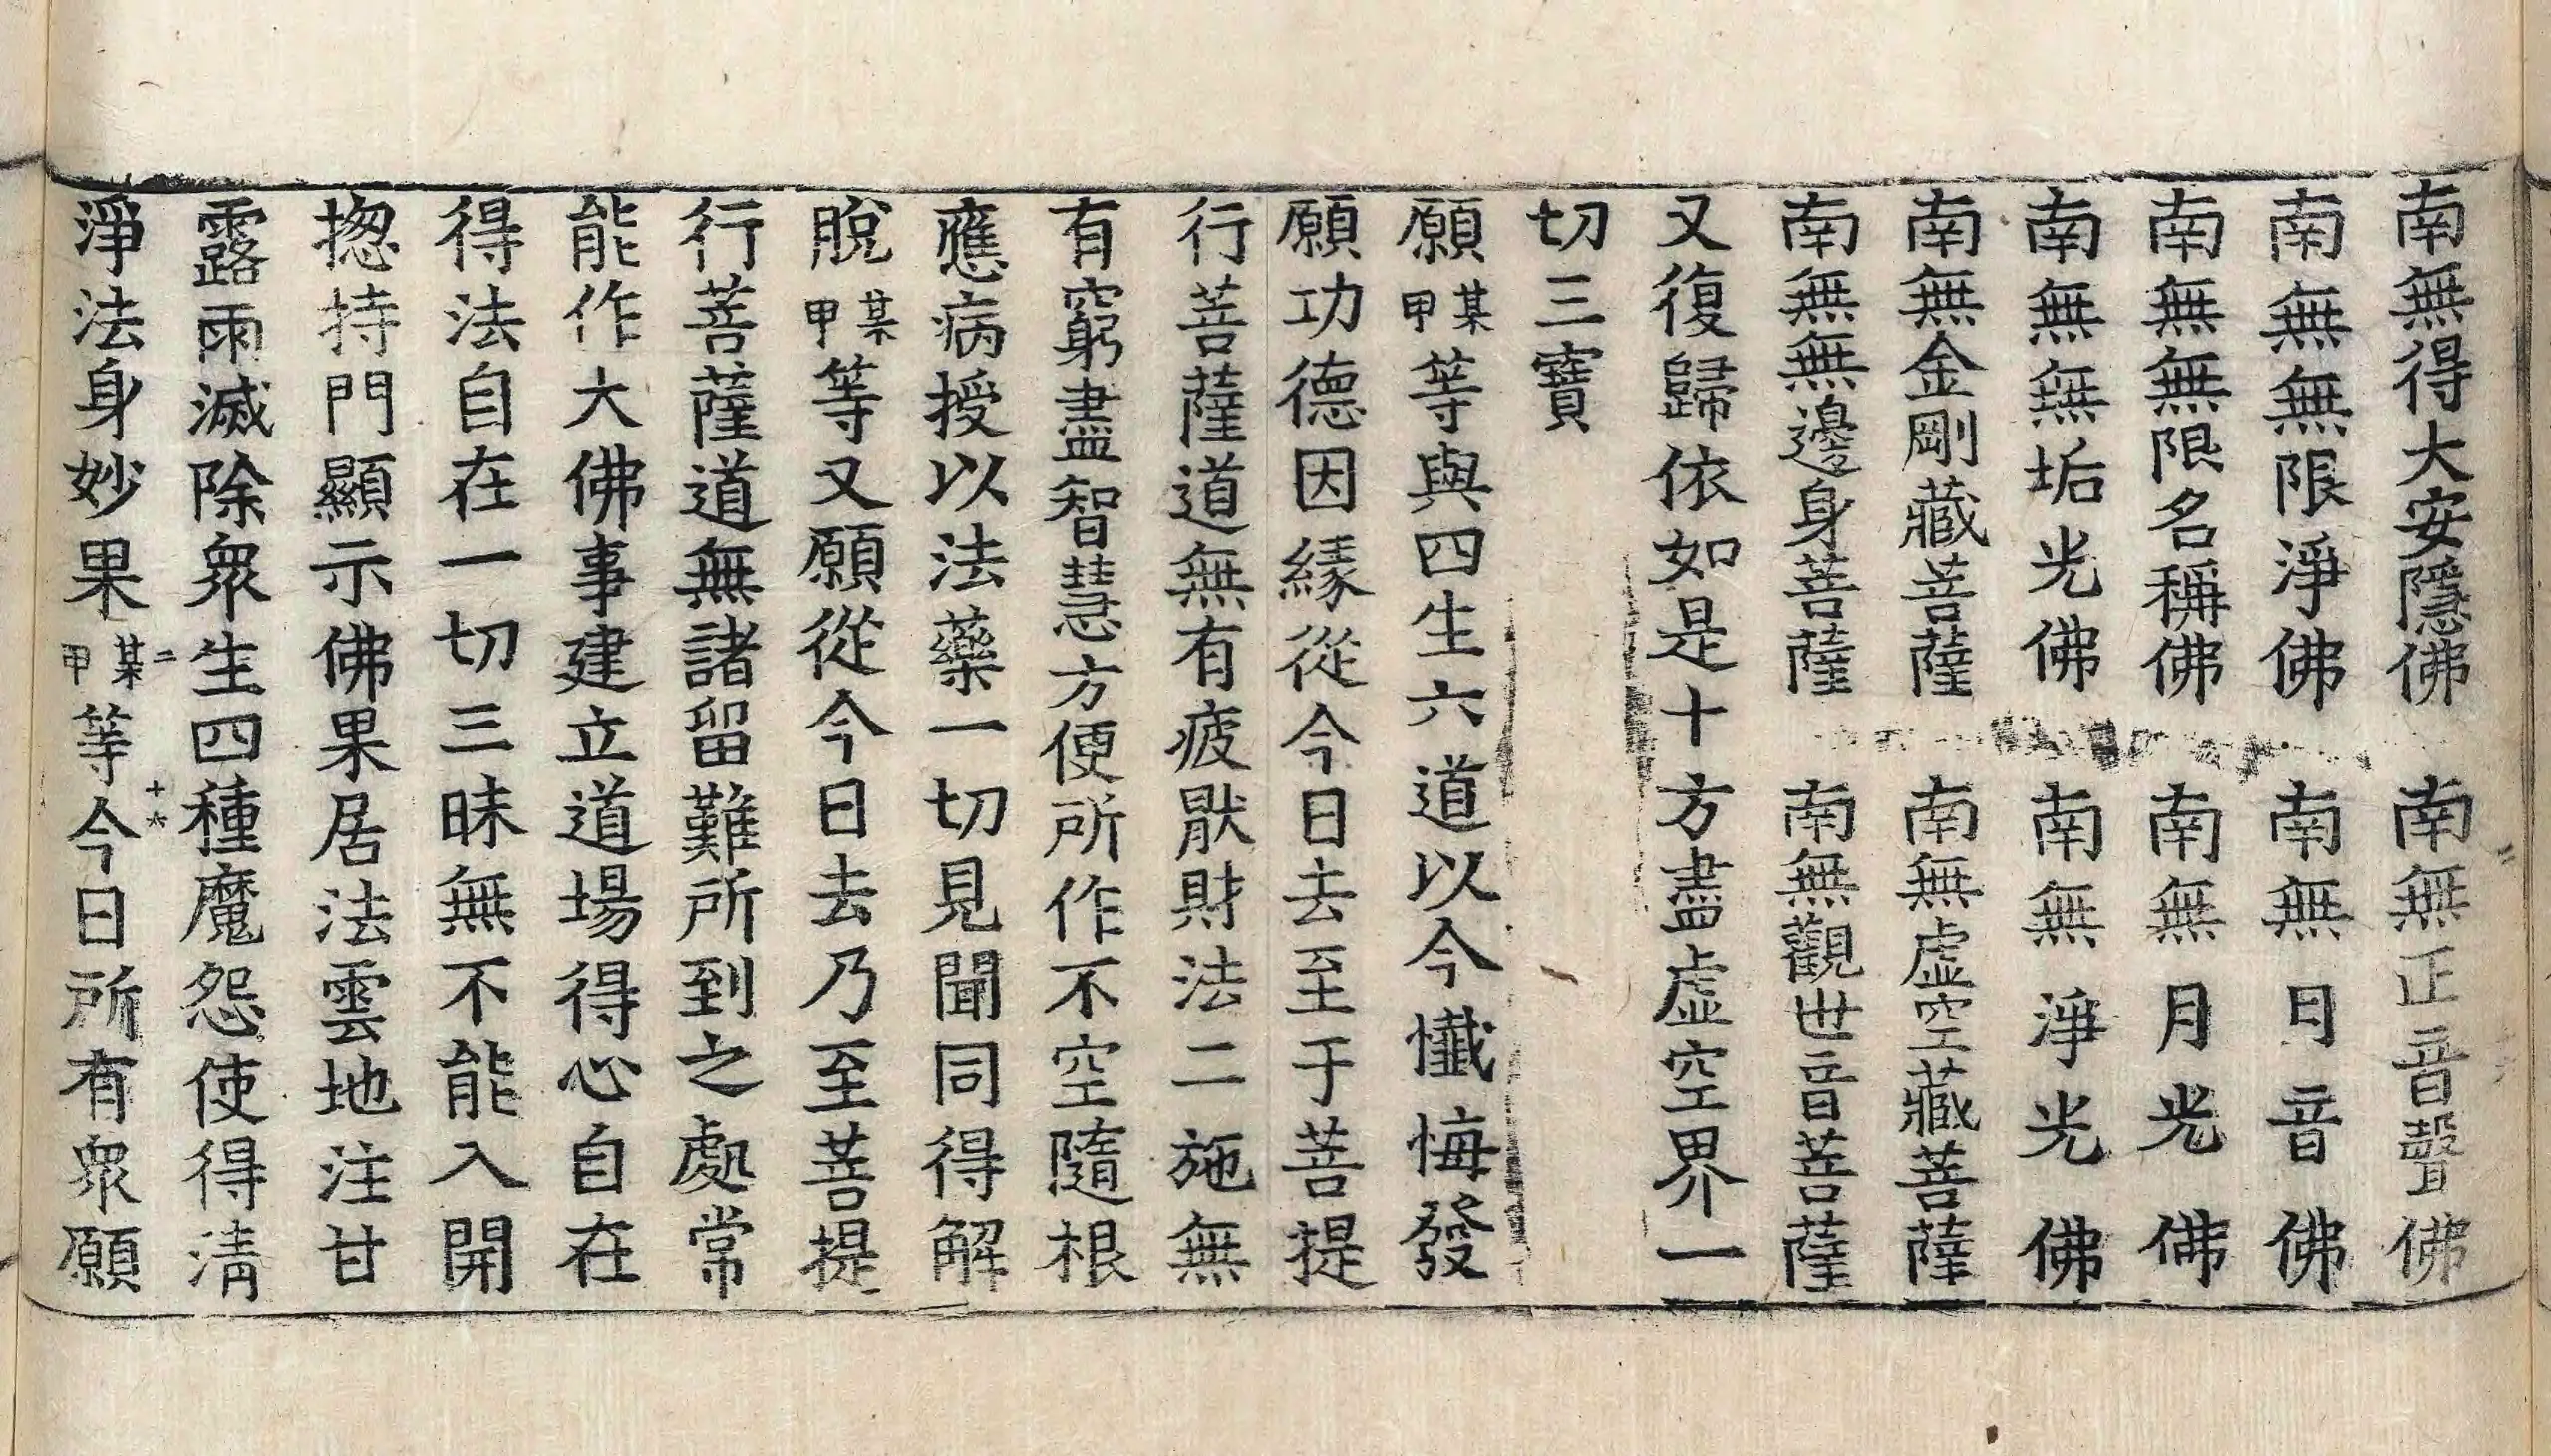 南無得大安隱佛　南無正音聲佛
南無無限淨佛　南無日音佛
南無無限名稱佛　南無月光佛
南無無垢光佛　南無淨光佛
南無金剛藏菩薩　南無虛空藏菩薩
南無無邊身菩薩　南無觀世音菩薩
又復歸依如是十方盡虛空界一
切三寶
願某甲等與四生六道以今懺悔發
願功德因緣從今日去至于菩提
行菩薩道無有疲猒財法二施無
有窮盡智慧方便所作不空隨根
應病授以法藥一切見聞同得解
脫某甲等又願從今日去乃至菩提
行菩薩道無諸留難所到之處常
能作大佛事建立道場得心自在
得法自在一切三昧無不能入開
揔持門顯示佛果居法雲地注甘
露雨滅除衆生四種魔怨使得淸
二　十六
淨法身妙果某甲等今日所有衆願